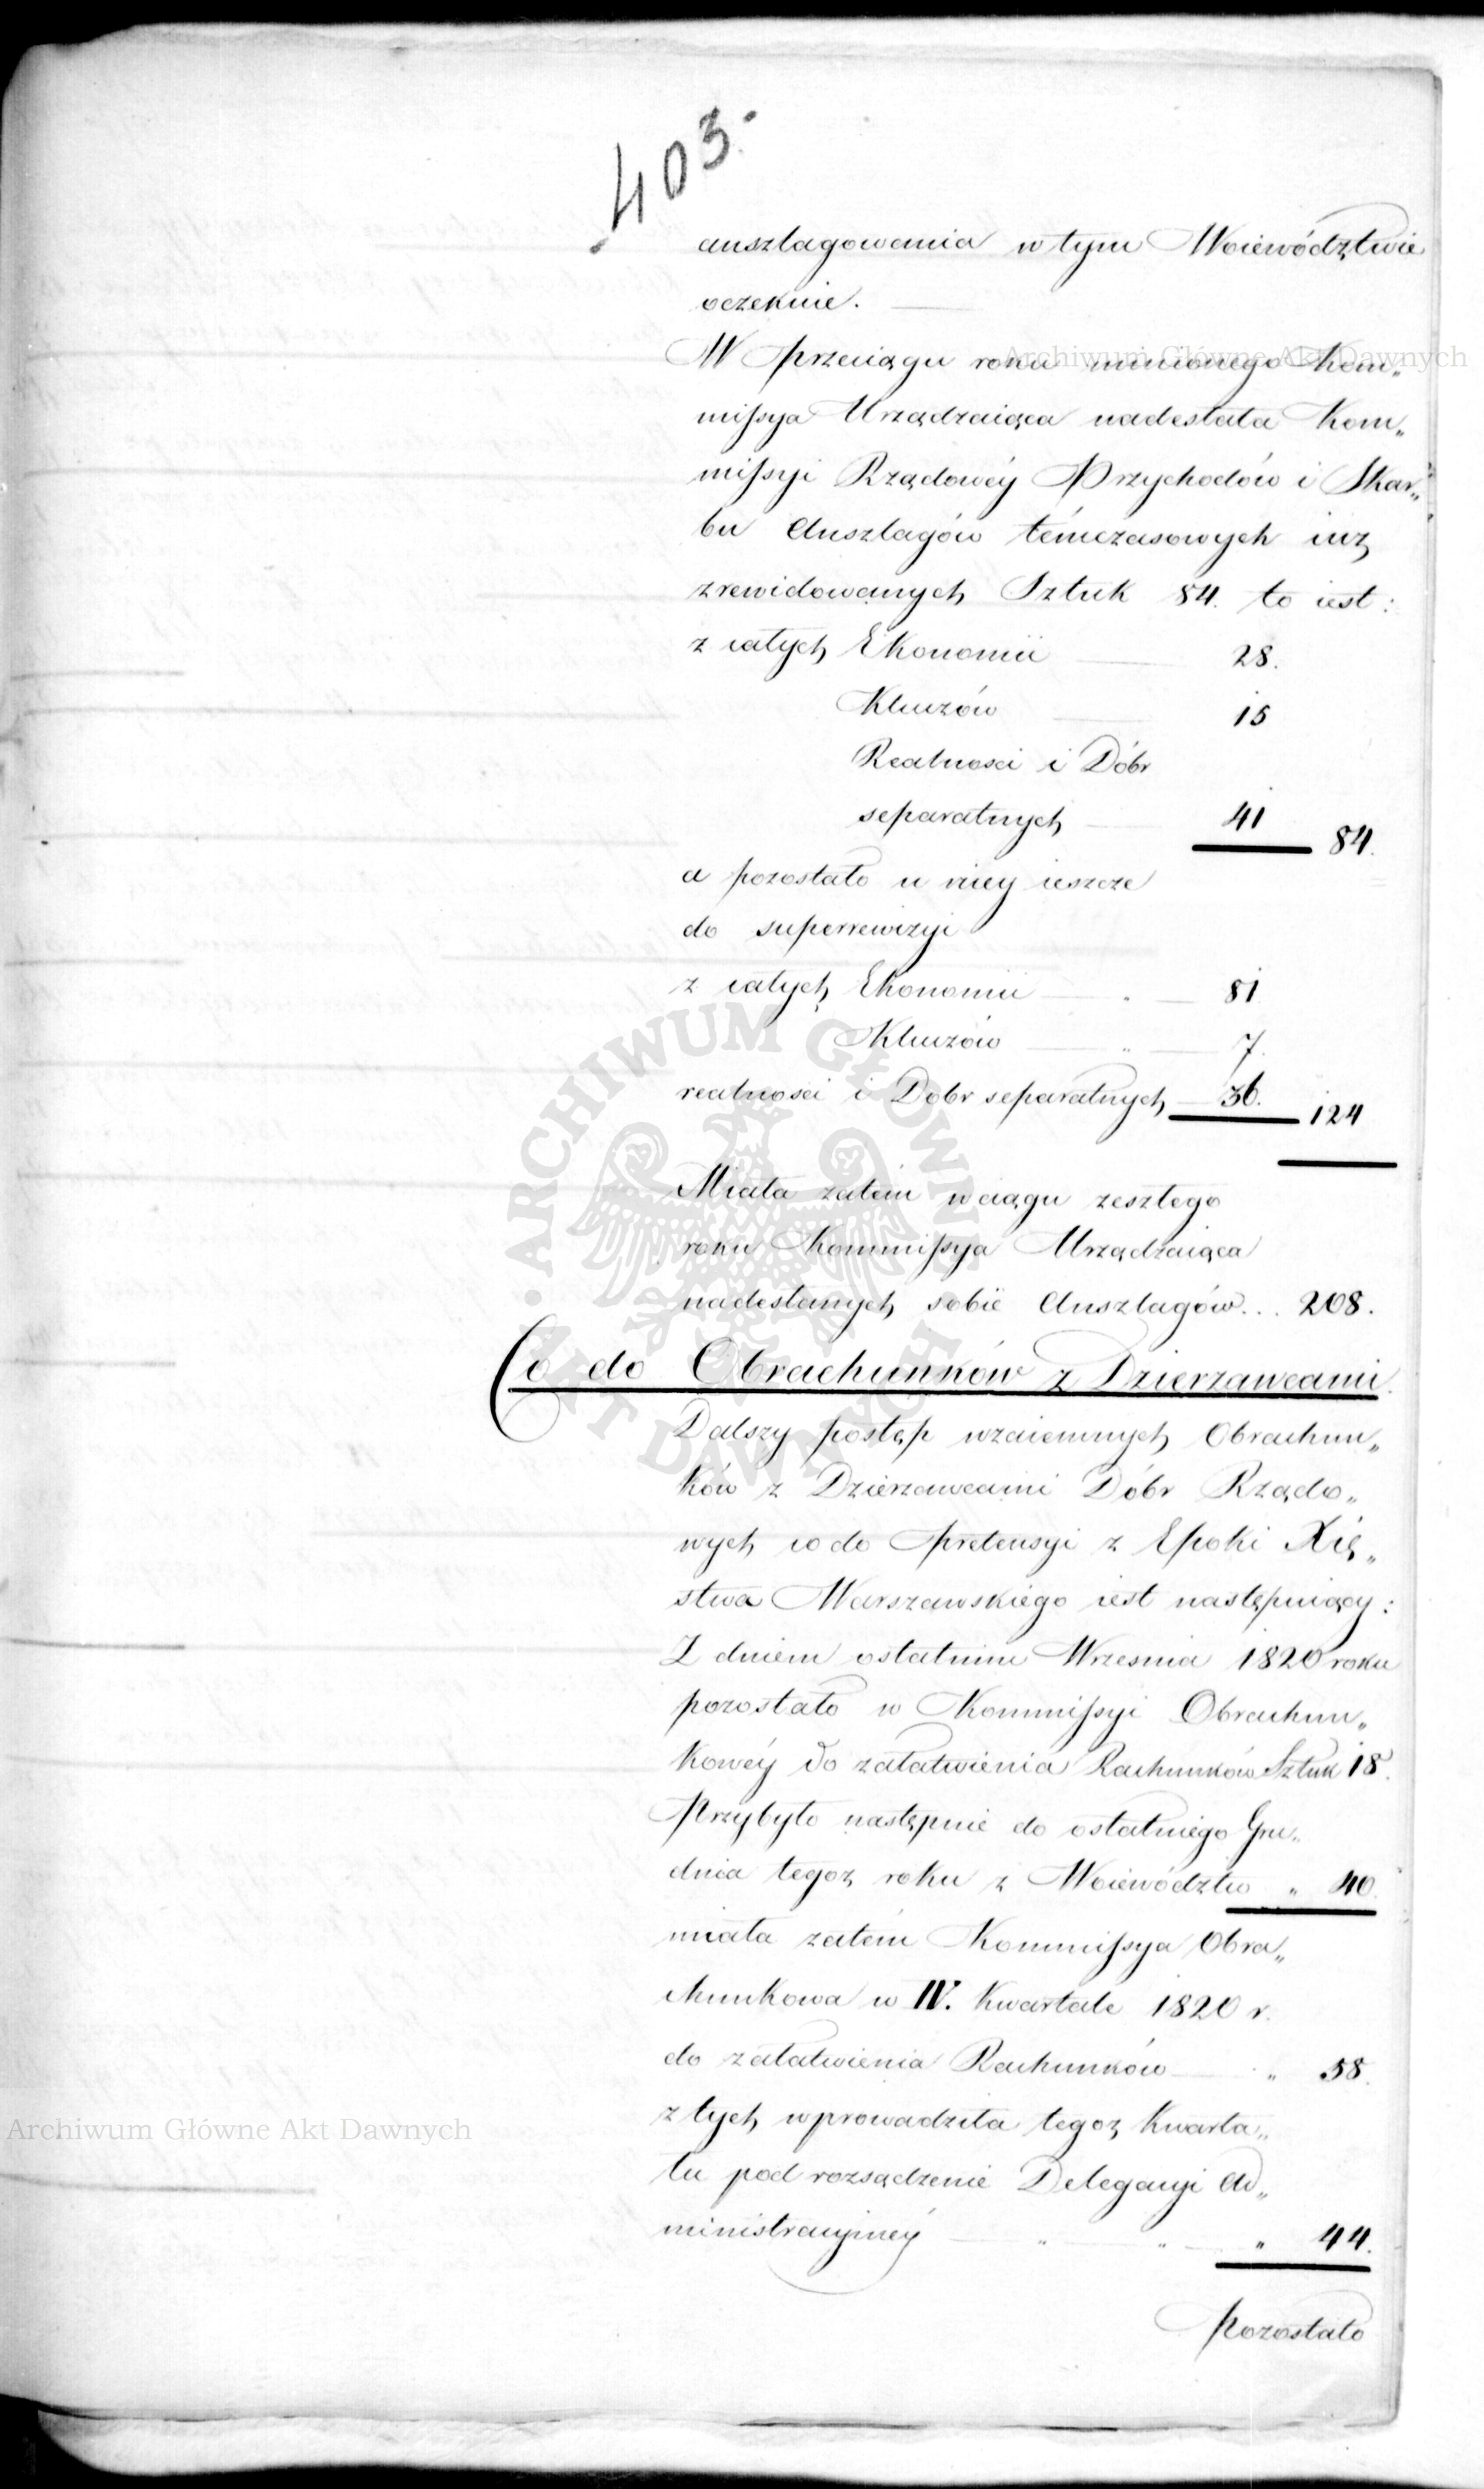 .403.
anszlagowania w tym Woiewództwie
oczekuie.
W przeciągu roku minionego Kom„
missya Urządzaiąca nadesłała Kom„
missyi Rządowéy Przychodów i Skar„
bu Anszlagów témczasowych iuż
zrewidowanych Sztuk 84. to iest:
z całych Ekonomii 28.
Kluczów 15
Realnosci i Dóbr
separatnych 41 84.
a pozostało u niey ieszcze
do superrewizyi
z całych Ekonomii „ 81
Kluczów „ 7.
realnosci i Dobr separatnych 36. 124
Miała zatém w ciągu zeszłego
roku Kommissya Urządzaiąca
nadesłanych sobie Anszlagów... 208.
Co do Obrachunków z Dzierzawcami.
Dalszy postęp wzaiemnych Obrachun„
ków z Dzierzawcami Dóbr Rządo„
wych co do pretensyi z Epoki Xię„
stwa Warszawskiego iest następuiący:
Z dniem ostatnim Wrzesnia 1820 roku
pozostało w Kommissyi Obrachun„
kowéy do załatwienia Rachunków Sztuk 18.
Przybyło następnie do ostatniego Gru„
dnia tegoż roku z Woiewództw „ 40.
miała zatém Kommissya Obra„
chunkowa w IV. Kwartale 1820 r.
do załatwienia Rachunków „ 58.
z tych wprowadziła tegoż Kwarta„
łu pod rozsądzenie Delegacyi Ad„
ministracyinéy „ „ „ 44.
pozostało
Archiwum Główne Akt Dawnych
Archiwum Główne Akt Dawnych
ARCHIWUM GŁÓWNE · AKT DAWNYCH ·